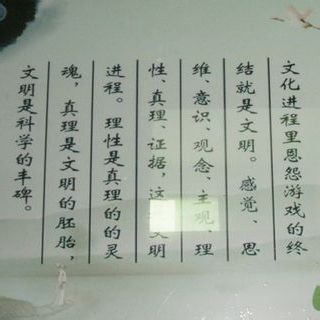 文化进程里恩怨游戏的终
结就是文明。感觉、思
维、意识、观念、主观、理
性、真理、证据，这文明
进程。理性是真理的的灵
魂，真理是文明的胚胎，
文明是科学的丰碑。